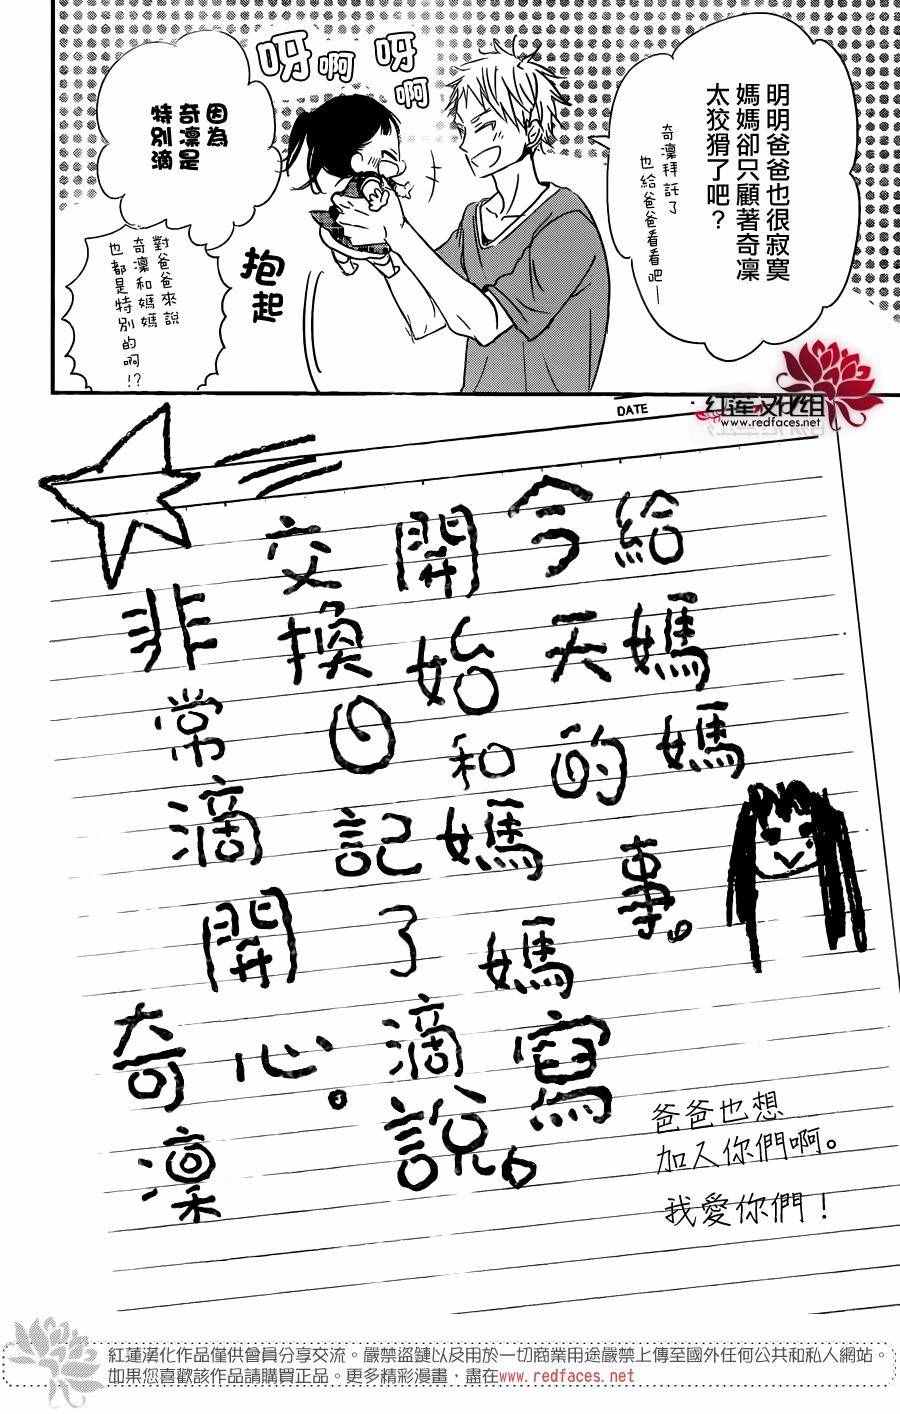 明明爸爸也很寂寞
媽媽卻只顧著奇凜
太狡猾了吧？
奇凜拜託了
也給爸爸看看吧—
呀啊
呀啊
抱起
因為
奇凜是
特別滴
對爸爸來說
奇凜和媽媽
也都是特別的啊!?
紅莲汉化组
www.redfaces.net
DATE
給媽媽
今天的事。
開始和媽媽寫
交換日記了滴說。
非常滴開心。
奇凜
爸爸也想
加入你們啊。
我愛你們！
紅蓮漢化作品僅供會員分享交流。嚴禁盜鏈以及用於一切商業用途嚴禁上傳至國外任何公共和私人網站。
如果您喜歡該作品請購買正品。更多精彩漫畫，盡在www.redfaces.net